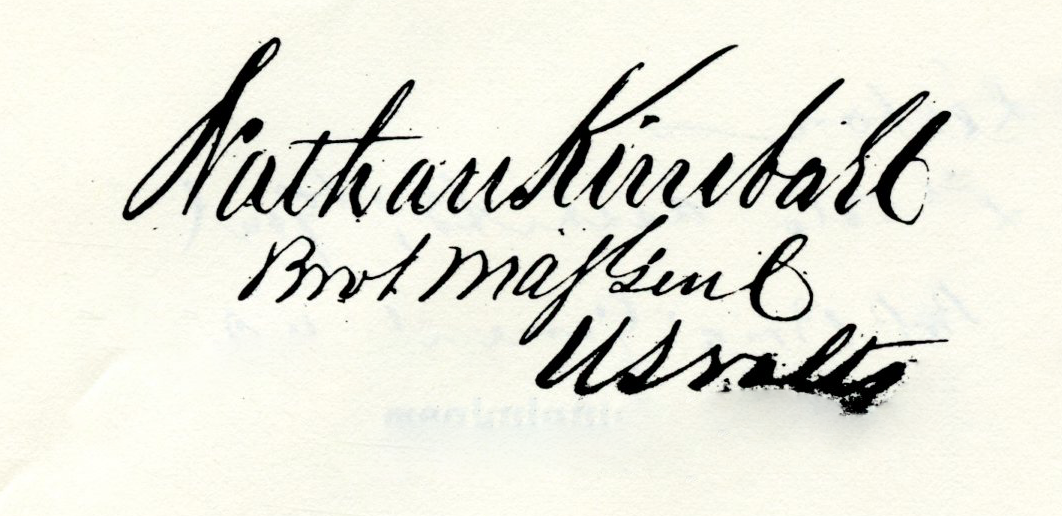 Nathan Kimball
Brvt Maj Genl
US volts